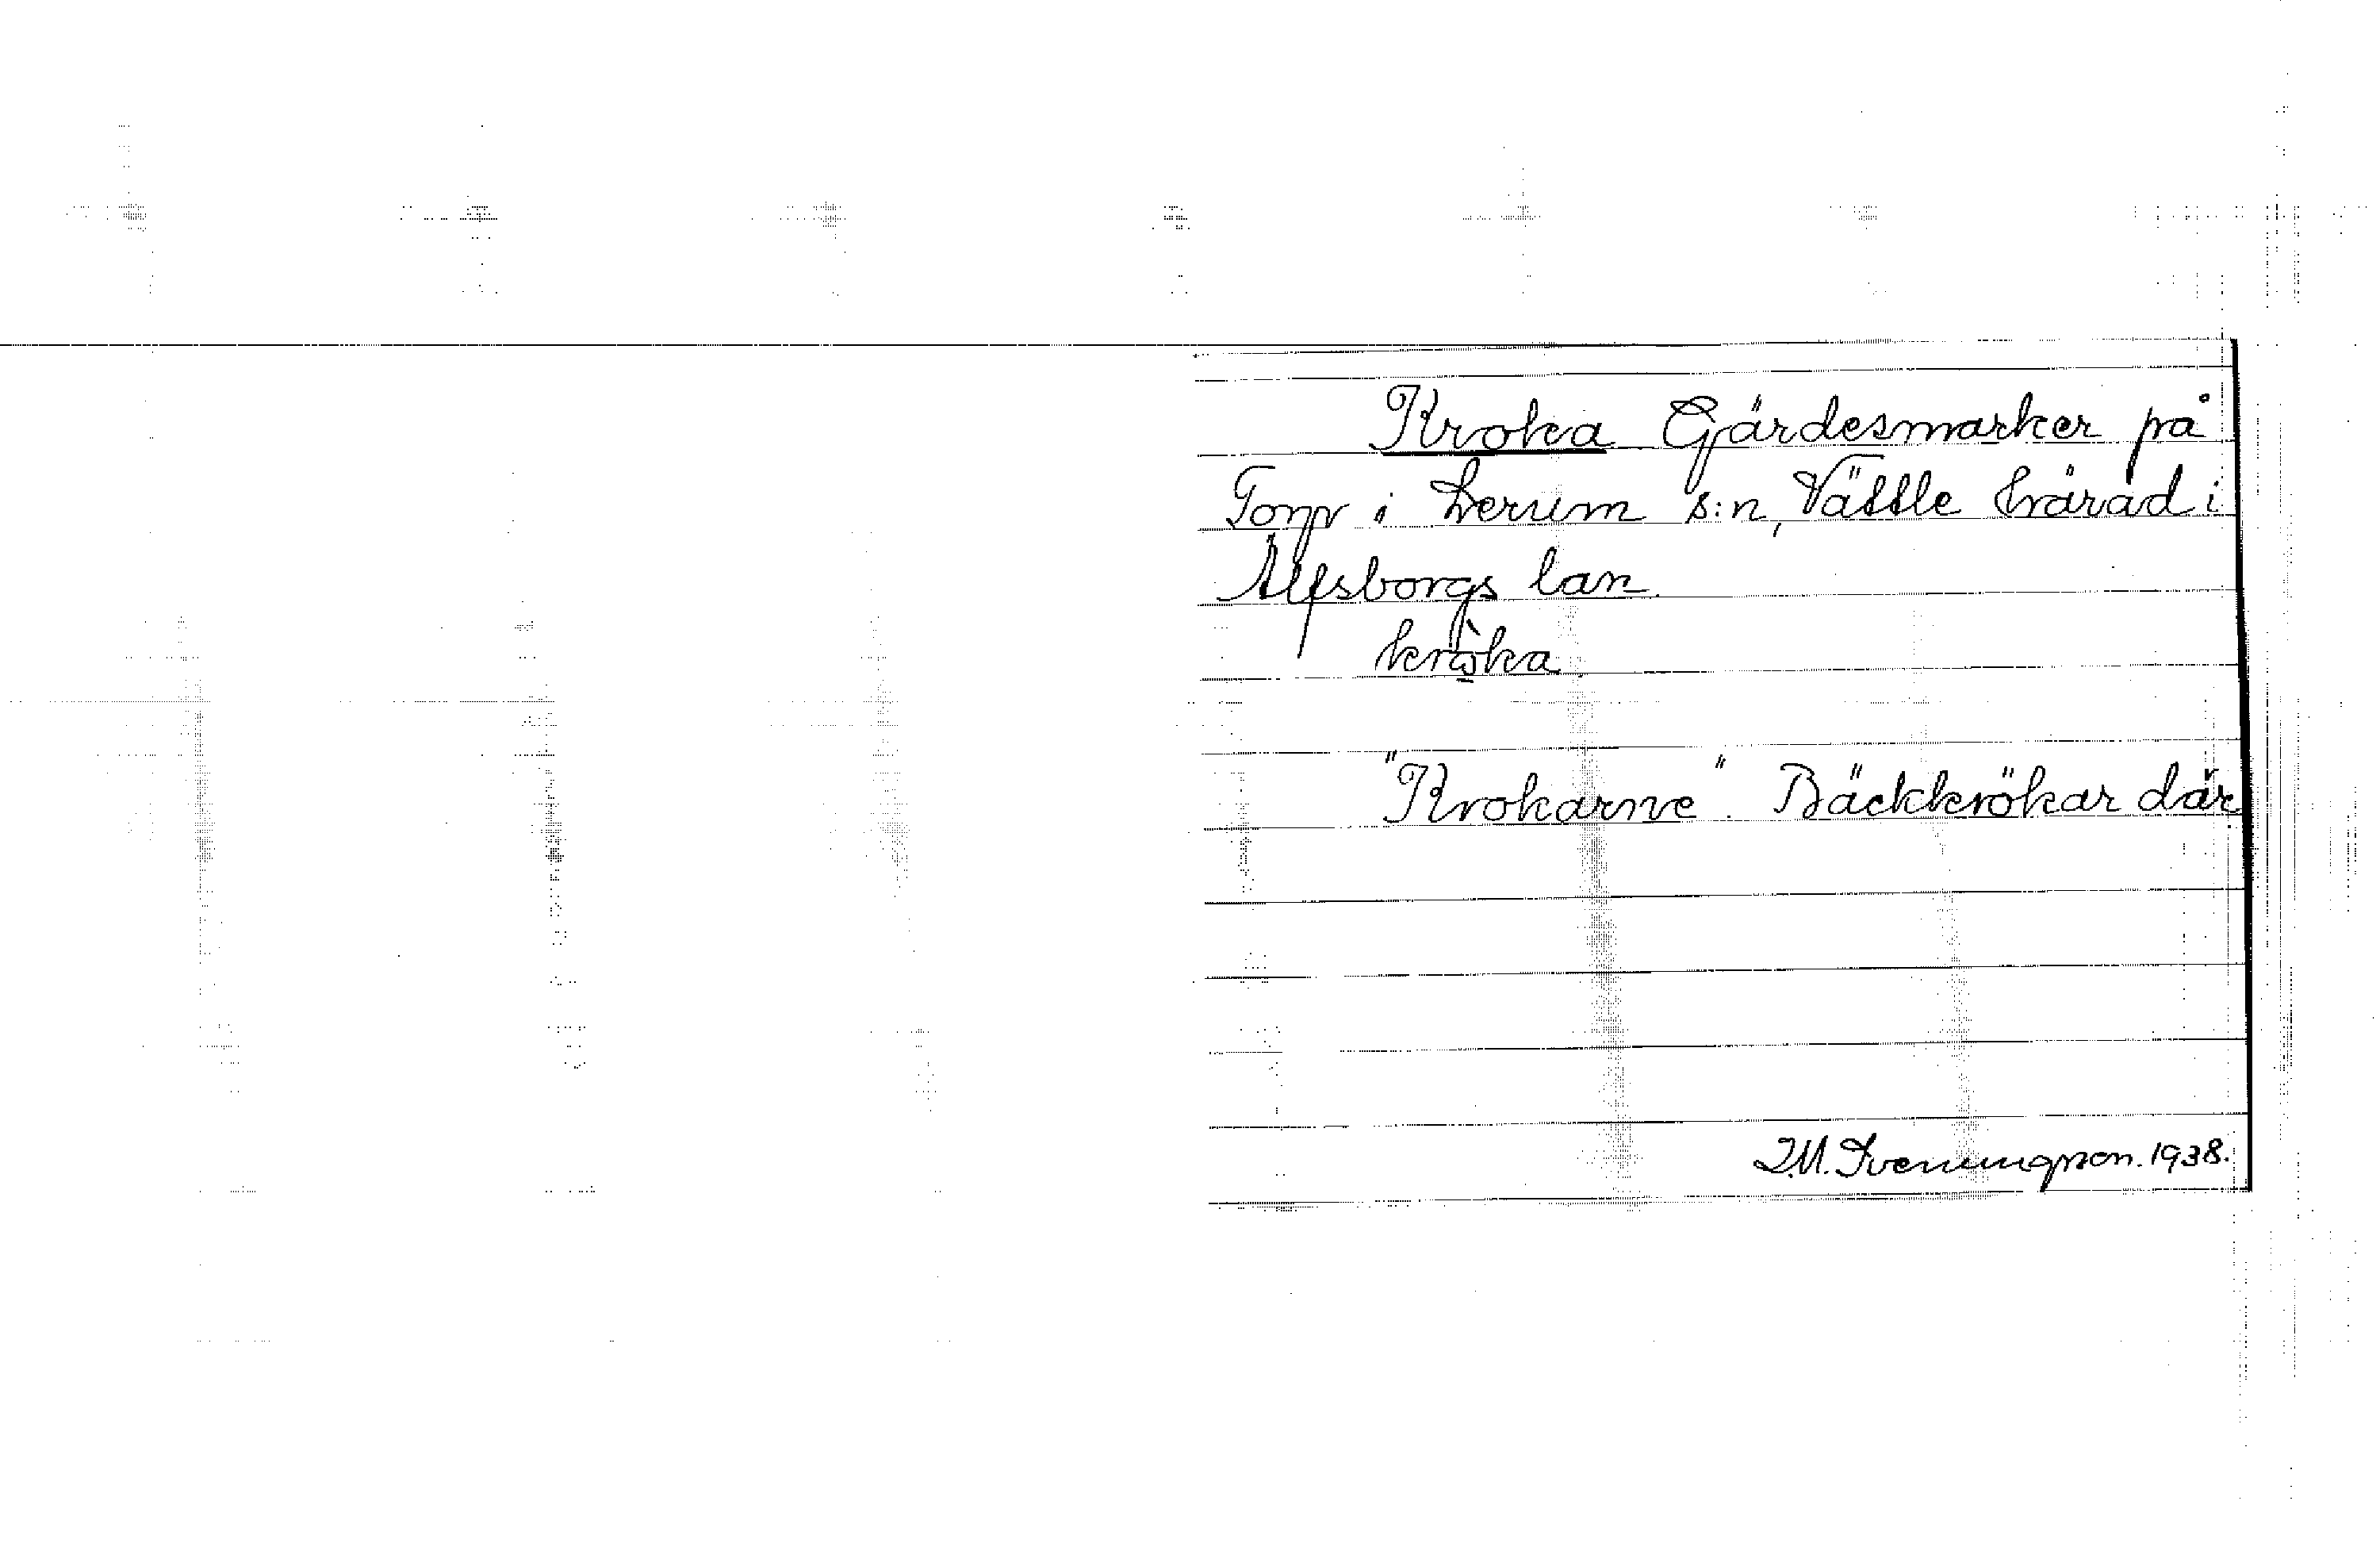 Kroka Gärdesmarker på
Torp i Lerum s:n, Vättle härad i
Älfsborgs län.
kròka
"Krokarne". Bäckkrökar där.
I.M. Svenungsson. 1938.